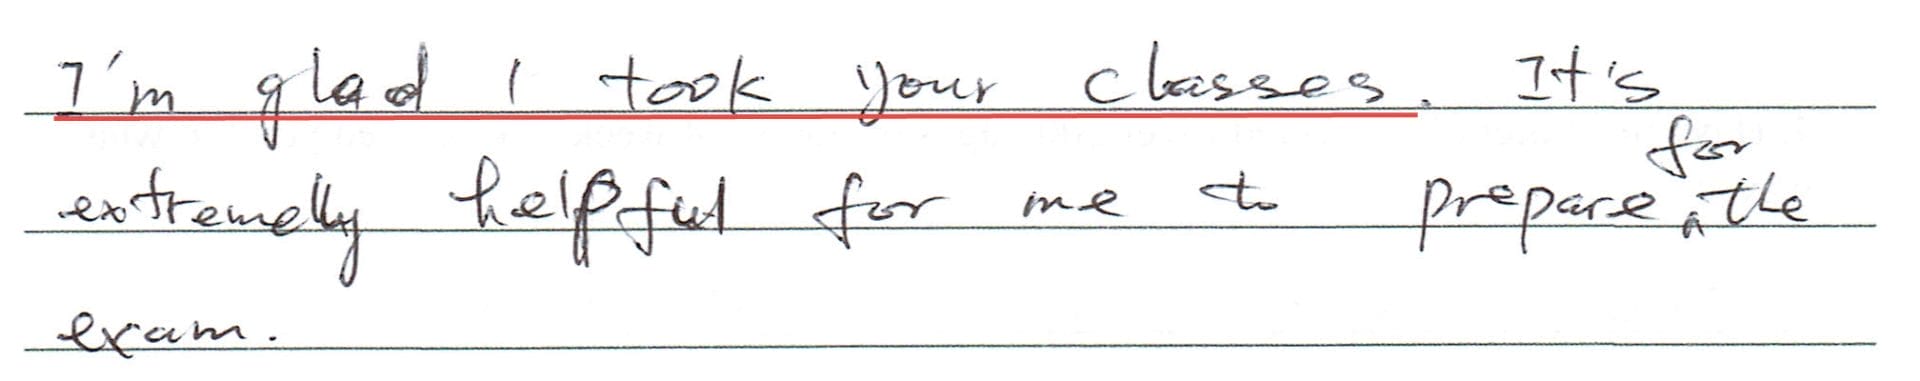 I'm glad I took your classes. It's
extremelly helpful for me to prepare for the
exam.